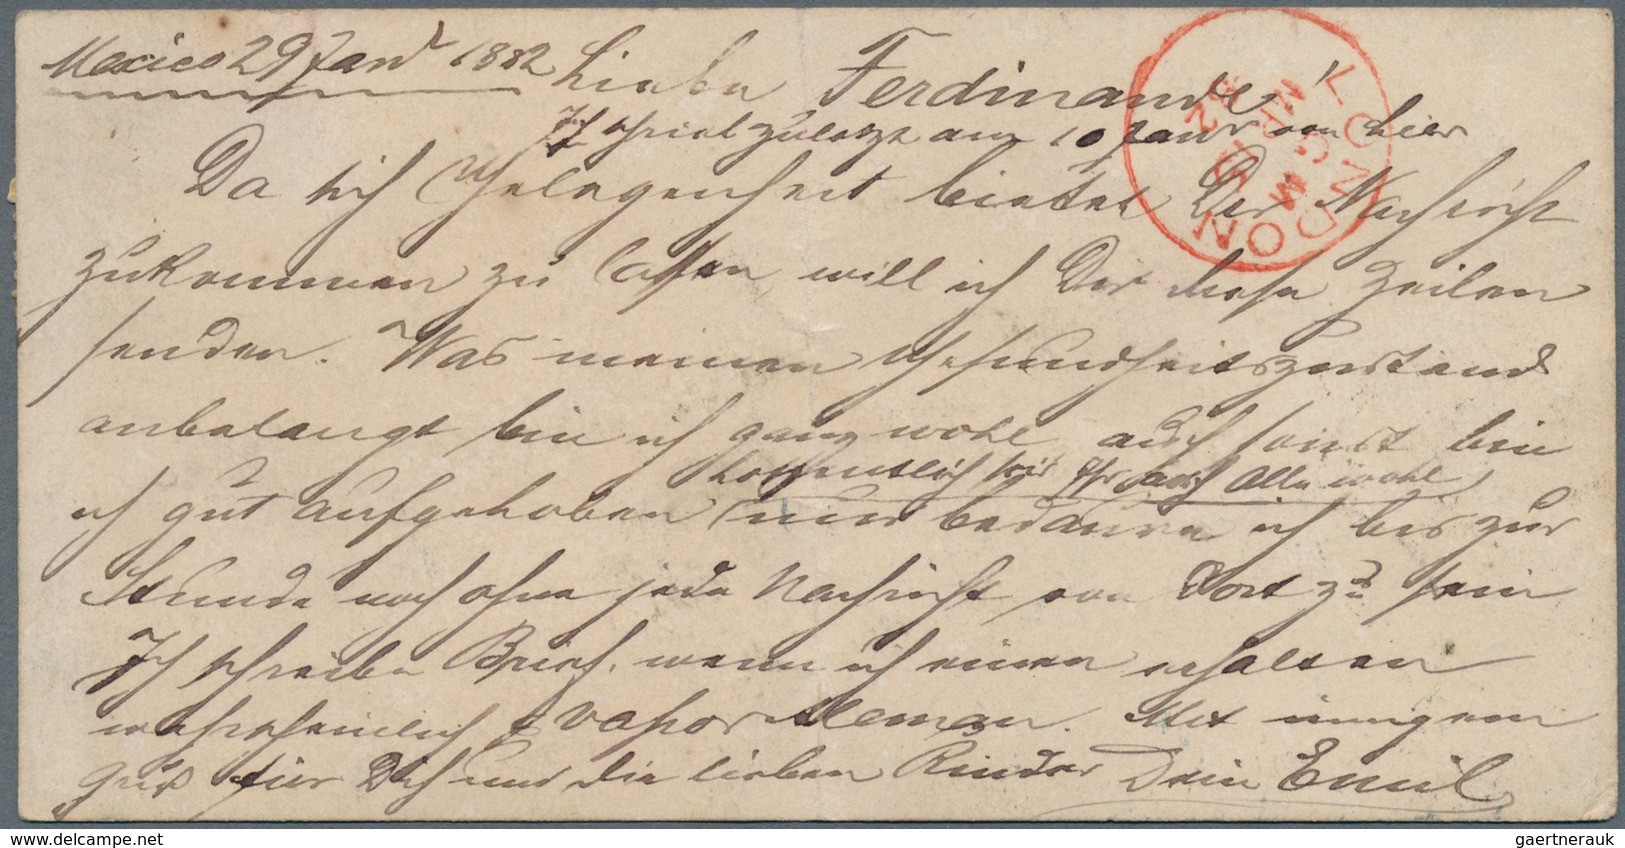 Mexico 29 Jan 1882 Liebe Ferdinande!
Ich schrieb zuletzt am 10 Janr von hier
Da sich Gelegenheit bietet Dir Nachricht
zukommen zu lassen, will ich Dir diese Zeilen
senden. Was meinen Gesundheitszustand
anbelangt bin ich ganz wohl auch sonst bin
hoffentlich seit Ihr auch Alle wohl
ich gut aufgehoben nur bedaure ich bis zur
Stunde noch ohne jede Nachricht von Dort zu sein
Ich schreibe Brief. wenn ich einen erhalten
wahrscheinlich p vapor Aleman. Mit innigem
Gruß für Dich und die lieben Kinder Dein Emil
LONDON
M
MR 82
delcampe.net
gaertnerauk